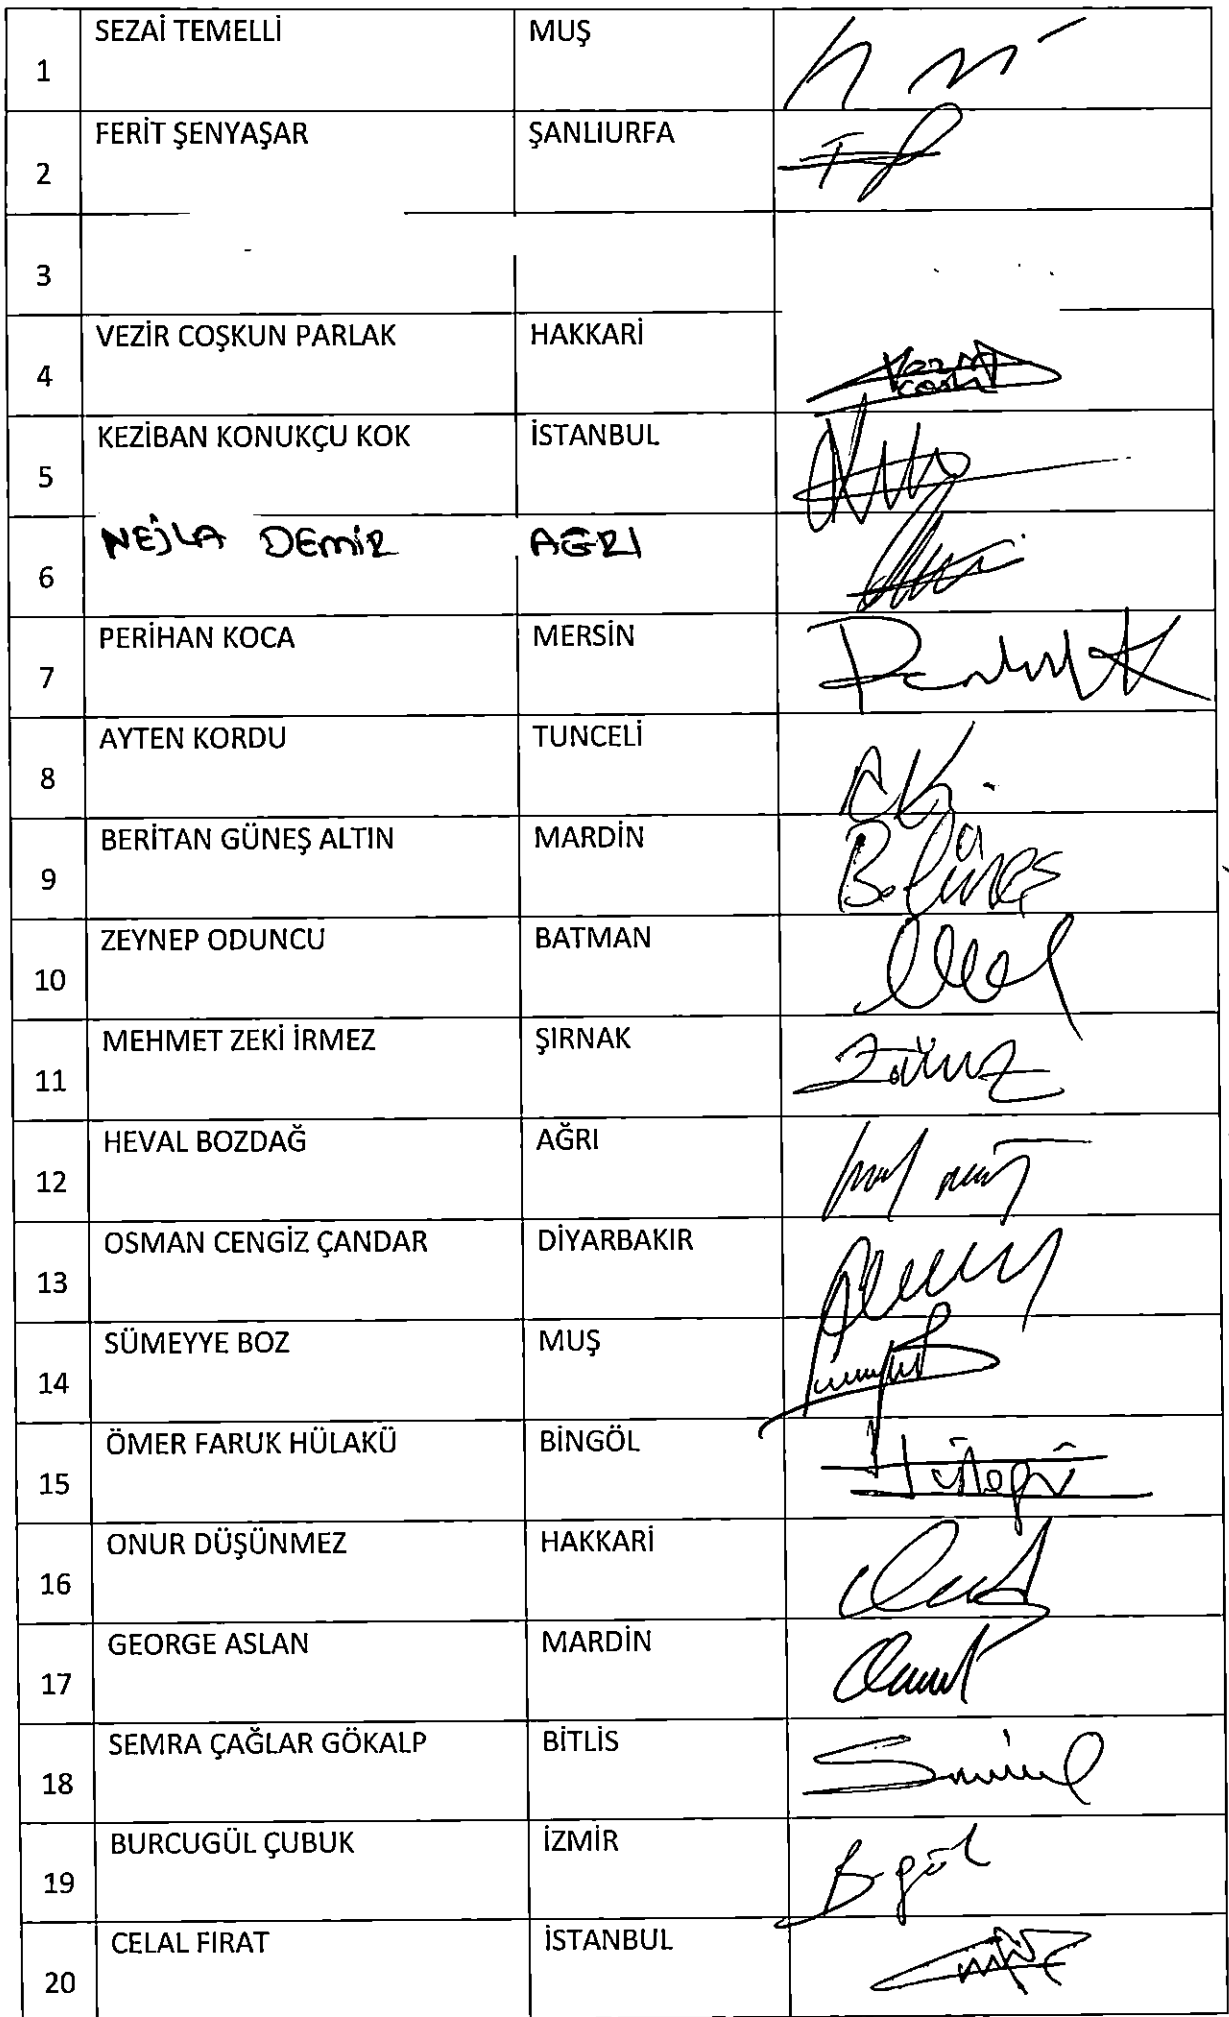 1 SEZAİ TEMELLİ MUŞ
2 FERİT ŞENYAŞAR ŞANLIURFA
3
4 VEZİR COŞKUN PARLAK HAKKARİ
5 KEZİBAN KONUKÇU KOK İSTANBUL
6 NEJLA DEMİR AĞRI
7 PERİHAN KOCA MERSİN
8 AYTEN KORDU TUNCELİ
9 BERİTAN GÜNEŞ ALTIN MARDİN B. Güneş
10 ZEYNEP ODUNCU BATMAN
11 MEHMET ZEKİ İRMEZ ŞIRNAK
12 HEVAL BOZDAĞ AĞRI
13 OSMAN CENGİZ ÇANDAR DİYARBAKIR
14 SÜMEYYE BOZ MUŞ
15 ÖMER FARUK HÜLAKÜ BİNGÖL
16 ONUR DÜŞÜNMEZ HAKKARİ
17 GEORGE ASLAN MARDİN
18 SEMRA ÇAĞLAR GÖKALP BİTLİS
19 BURCUGÜL ÇUBUK İZMİR B-gül
20 CELAL FIRAT İSTANBUL